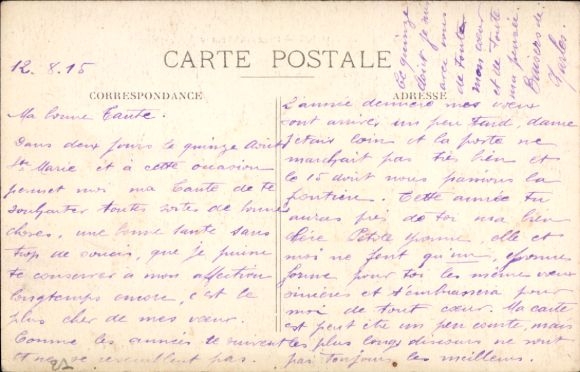 CARTE POSTALE
12.8.15
CORRESPONDANCE
ADRESSE
Ma bonne Tante.
Dans deux jours le quinze Août
Ste Marie et à cette occasion
permet moi ma Tante de te
souhaiter toutes sortes de bonnes
choses, une bonne santé sans
trop de soucis, que je puisse
te conserver à mon affection
longtemps encore, c'est le
plus cher de mes vœux.
Comme les années se suivent
et ne se ressemblent pas.
L'année dernière mes vœux
sont arrivés un peu tard, dame
j'étais loin et la poste ne
marchait pas très bien et
le 15 août nous passions la
frontière. Cette année tu
auras près de toi ma bien
chère Petite Yvonne, elle et
moi ne font qu'un, Yvonne
forme pour toi les mêmes vœux
sincères et t'embrassera pour
moi de tout cœur. Ma carte
est peut être un peu courte, mais
les plus longs discours ne sont
pas toujours les meilleurs.
Ce quinze
août je suis
avec vous
de toute
mon cœur
et de toute
ma pensée.
Baisers de
27